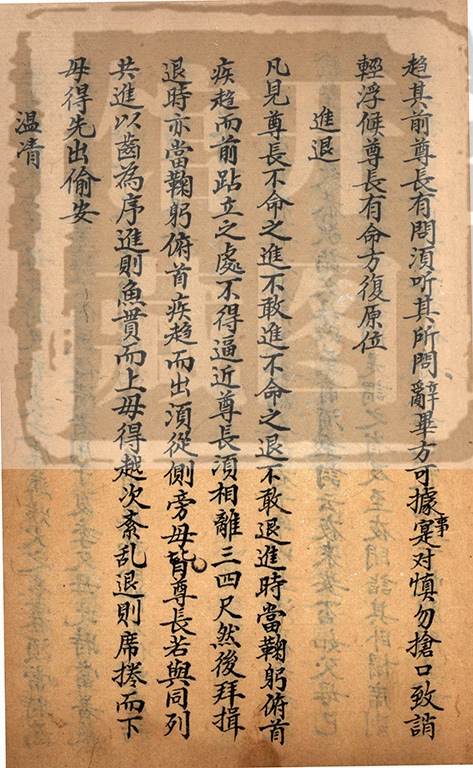 趋其前尊長有問湏听其所問辭畢方可據事寔对慎勿搶口致誚
輕浮候尊長有命方復原位
進退
凡見尊長不命之進不敢進不命之退不敢退進時當鞠躬俯首
疾趋而前跕立之處不得逼近尊長湏相離三四尺然後拜揖
退時亦當鞠躬俯首疾趋而出湏從側旁毋背尊長若與同列
共進以齒為序進則魚貫而上毋得越次紊乱退則席捲而下
毋得先出偷安
温凊